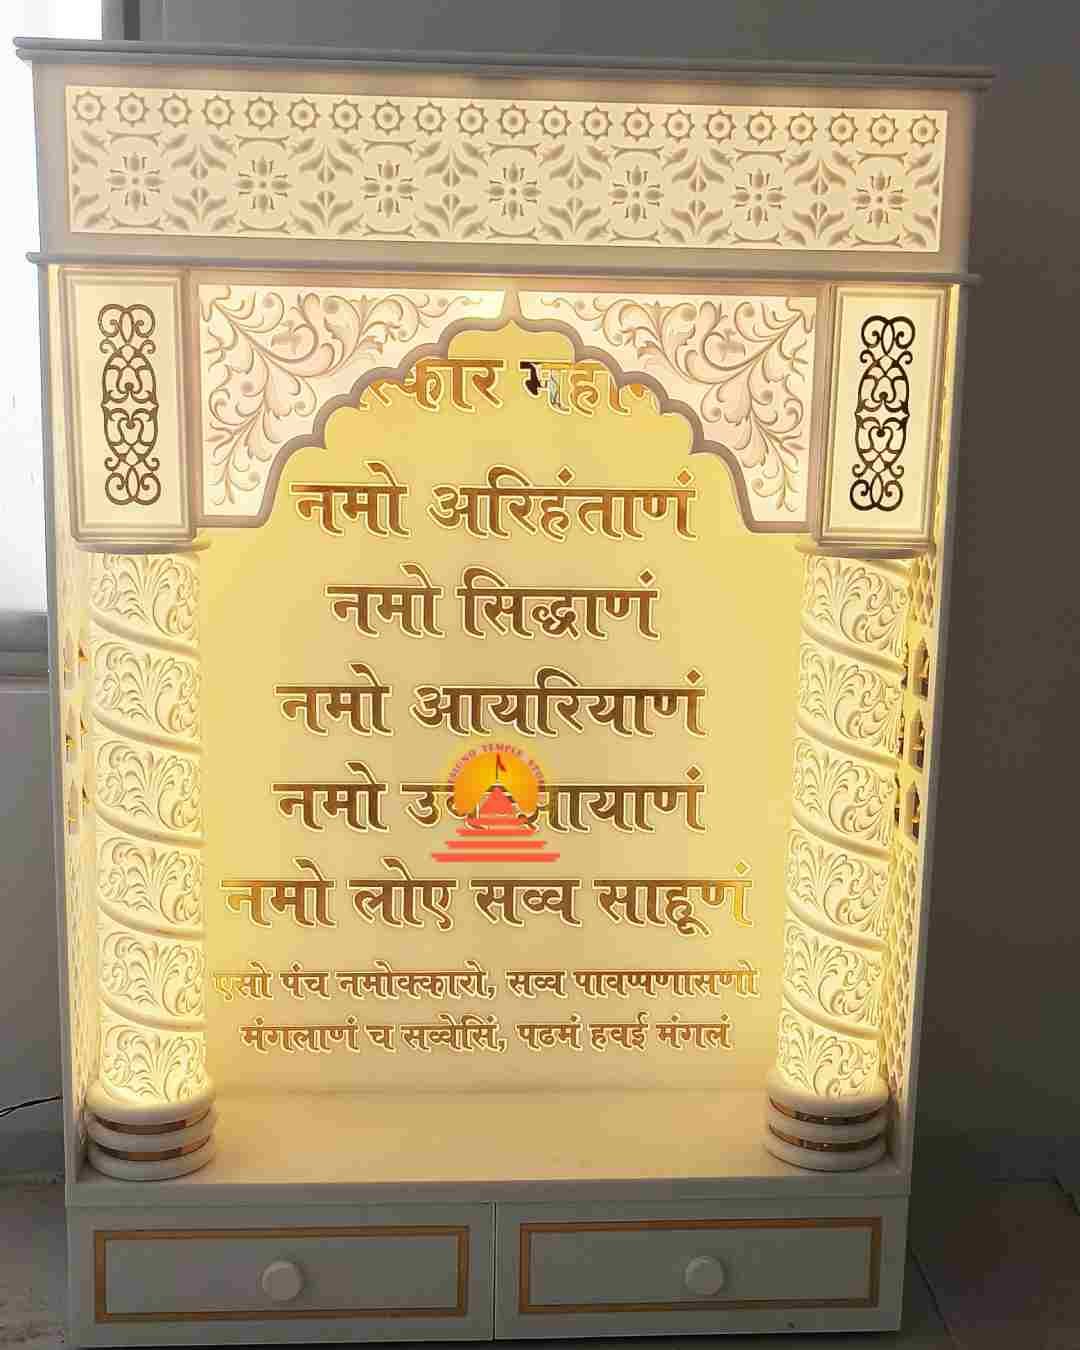 नमो अरिहंताणं
नमो सिद्धाणं
नमो आयरियाणं
TEMPLE
नमो
नमो लोए सव्व साहूणं
एसो पंच नमोक्कारो, सव्व पावप्पणासणो
मंगलाणं च सव्वेसिं, पढमं हवई मंगलं